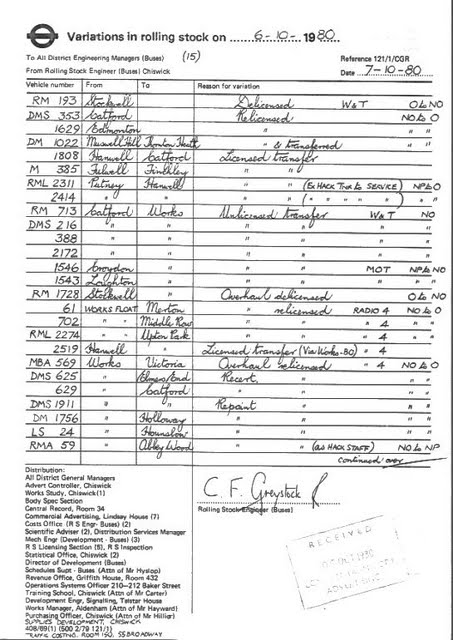 Variations in rolling stock on 6-10- 1980
To All District Engineering Managers (Buses) (15) Reference 121/1/CGR
From Rolling Stock Engineer (Buses) Chiswick Date 7-10-80
Vehicle number From To Reason for variation
RM 193 Stockwell Delicensed W&T O to NO
DMS 353 Catford Relicensed NO to O
1629 Edmonton " " "
DM 1022 Muswell Hill Thornton Heath " & transferred " "
1808 Hanwell Catford Licensed transfer
M 385 Fulwell Finchley " "
RML 2311 Putney Hanwell " " (Ex HACK TNR to SERVICE) NP to O
2414 " " " " ( " " " " ) " "
RM 713 Catford Works Unlicensed transfer W&T NO
DMS 216 " " " " " "
388 " " " " " "
2172 " " " " " "
1546 Croydon " " " MOT NP to NO
1543 Loughton " " " " "
RM 1728 Stockwell Overhaul delicensed O to NO
61 WORKS FLOAT Merton " relicensed RADIO 4 NO to O
702 " " Middle Row " " " 4 " "
RML 2274 " " Upton Park " " " 4 " "
2519 Hanwell Licensed transfer (Via Works-BO) " 4
MBA 569 Works Victoria Overhaul relicensed " 4 NO to O
DMS 625 " Elmers End Recert. " " "
629 " Catford " " " "
DMS 1911 " " Repaint " " "
DM 1756 " Holloway " " " "
LS 24 " Hounslow " " " "
RMA 59 " Abbey Wood " " (as HACK STAFF) NO to NP
continued over
Distribution:
All District General Managers
Advert Controller, Chiswick
Works Study, Chiswick (1)
Body Spec Section
Central Record, Room 34
Commercial Advertising, Lindsey House (7)
Costs Office (R S Engr- Buses) (2)
Scientific Adviser (2), Distribution Services Manager
Mech Engr (Development - Buses) (3)
R S Licensing Section (5), R S Inspection
Statistical Office, Chiswick (2)
Director of Development (Buses)
Schedules Supt - Buses (Attn of Mr Hyslop)
Revenue Office, Griffith House, Room 432
Operations Systems Officer 210–212 Baker Street
Training School, Chiswick (Attn of Mr Carter)
Development Engr, Signalling, Telstar House
Works Manager, Aldenham (Attn of Mr Hayward)
Purchasing Officer, Chiswick (Attn of Mr Hillier)
SUPPLIES DEVELOPMENT, CHISWICK
408/69(1) (500 2/79 121/1)
TRAFFIC COSTING. ROOM 150, 55 BROADWAY
C. F. Greystock
Rolling Stock Engineer (Buses)
RECEIVED
OCT 1980
ADVERTISING